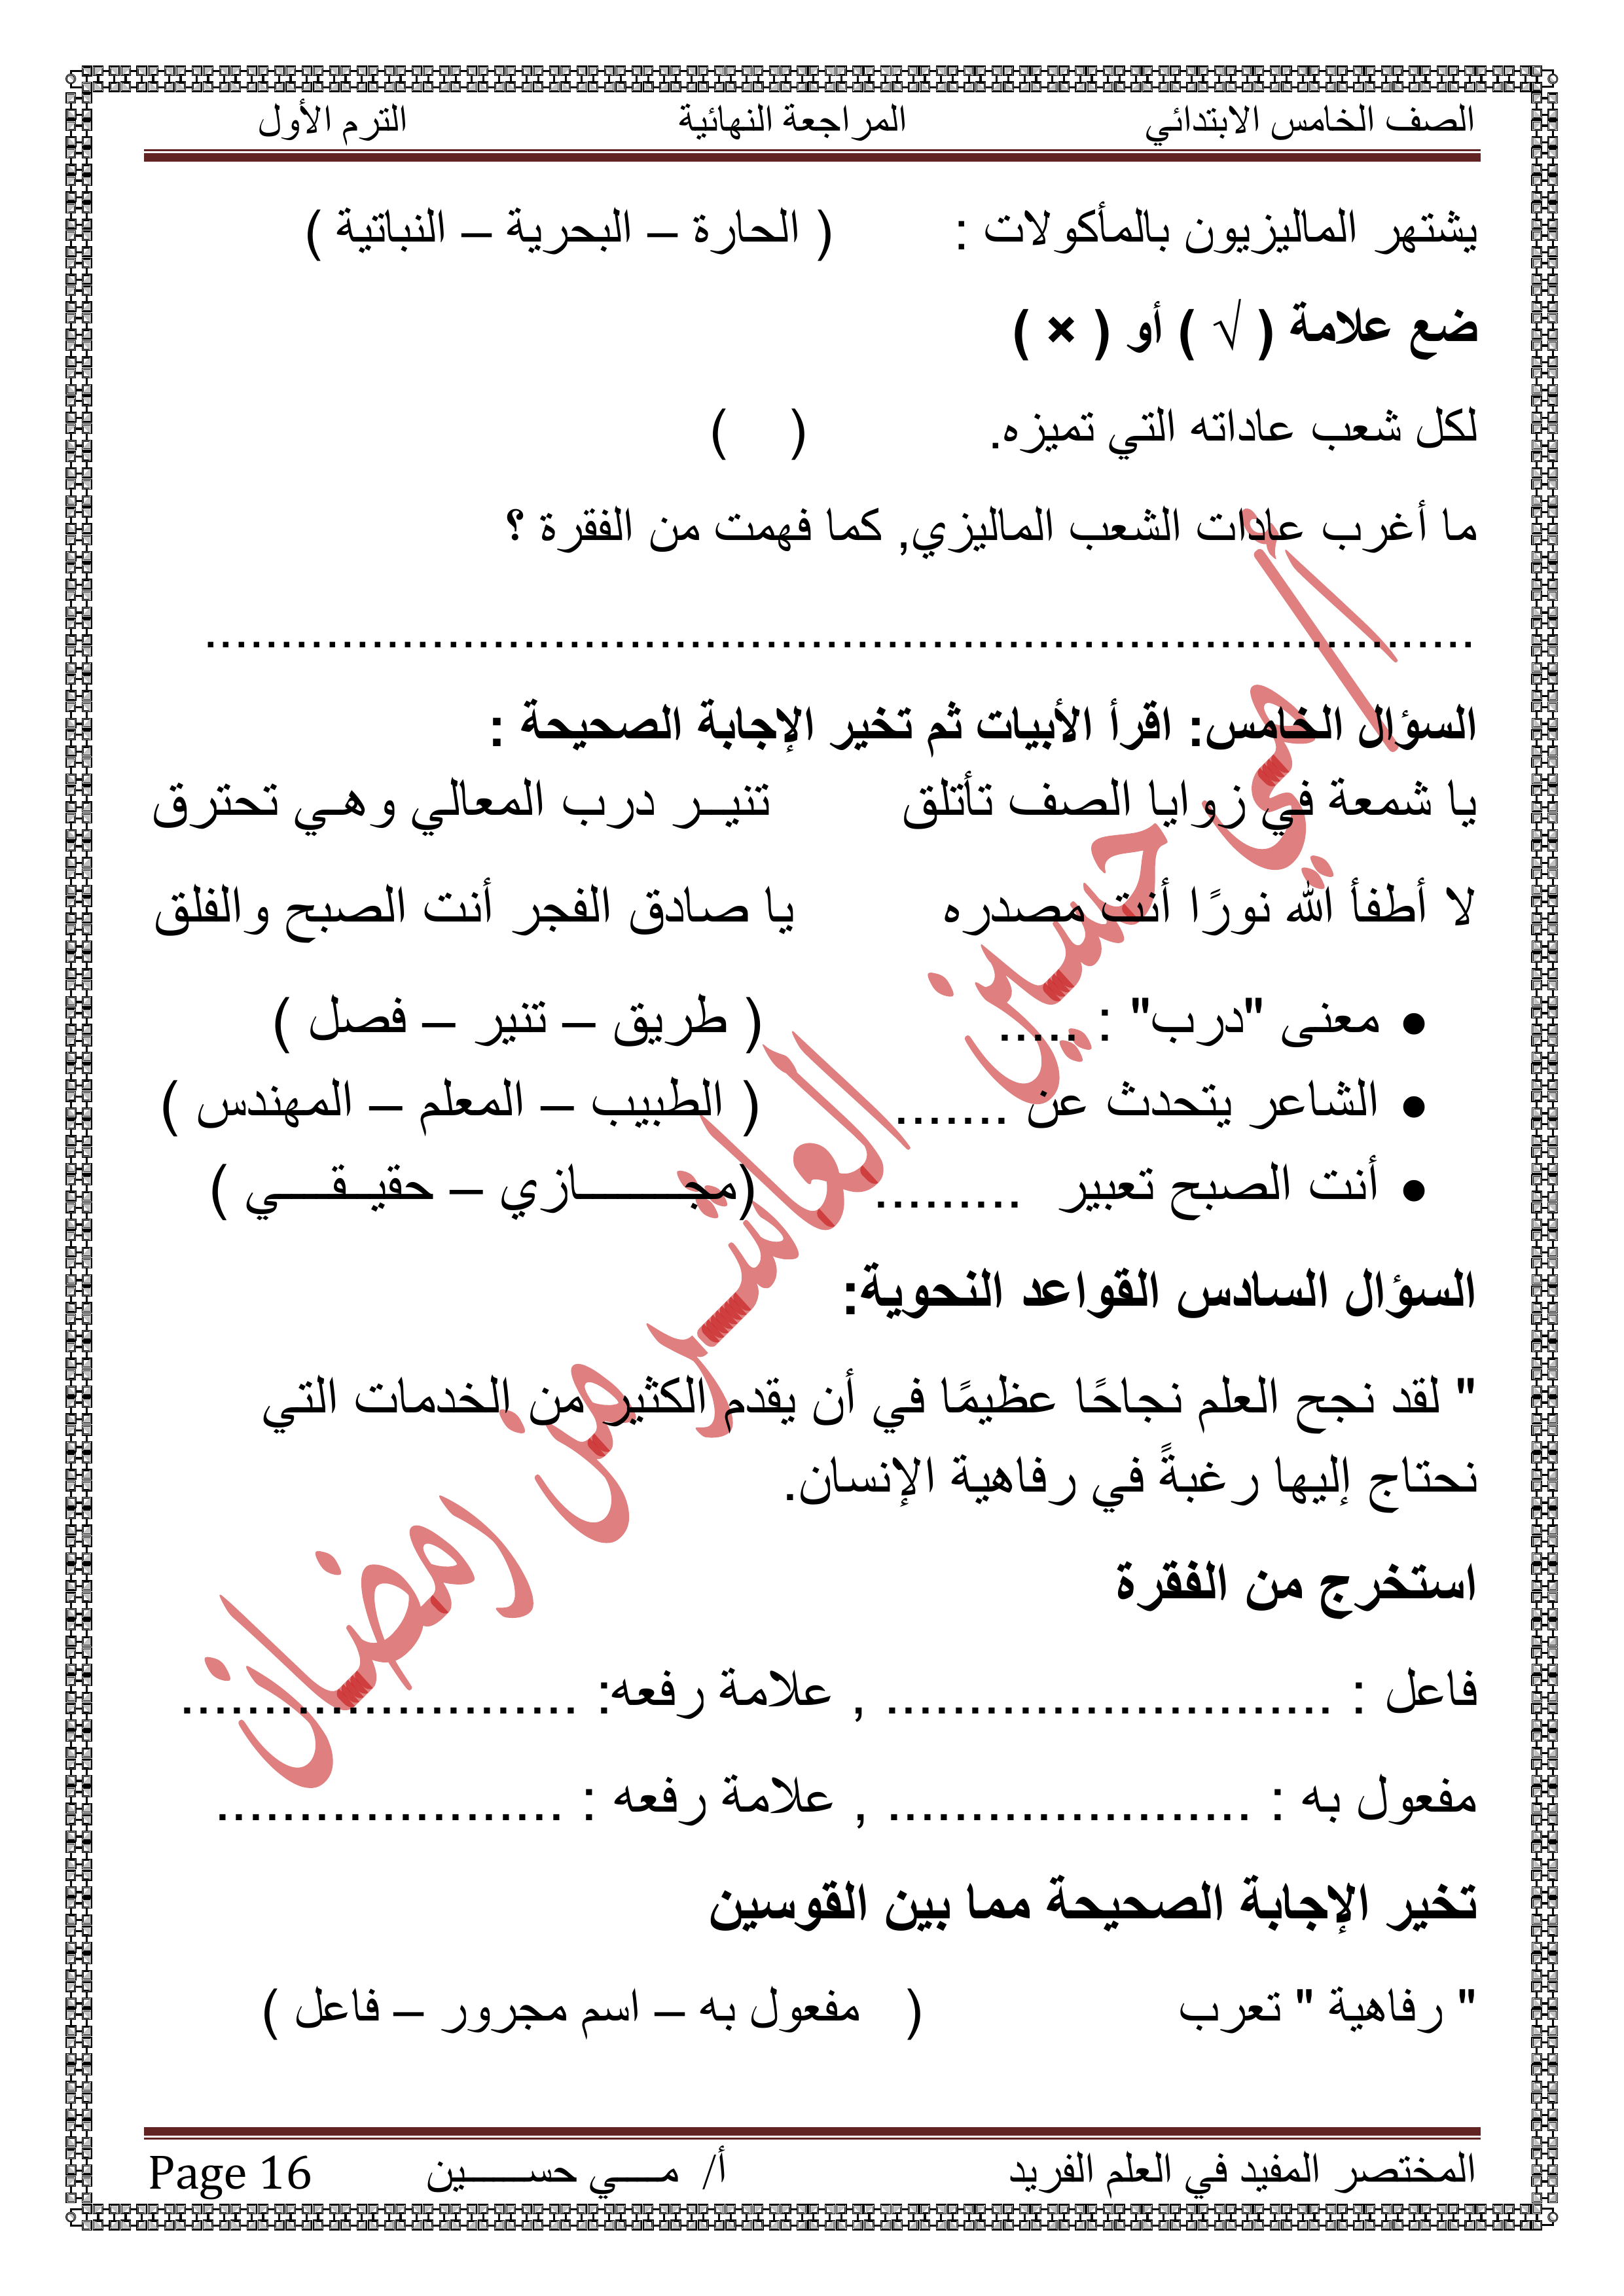 الصف الخامس الابتدائي المراجعة النهائية الترم الأول
يشتهر الماليزيون بالمأكولات : ( الحارة – البحرية – النباتية )
ضع علامة ( √ ) أو ( × )
لكل شعب عاداته التي تميزه. ( )
ما أغرب عادات الشعب الماليزي, كما فهمت من الفقرة ؟
....................................................................................
السؤال الخامس: اقرأ الأبيات ثم تخير الإجابة الصحيحة :
يا شمعة في زوايا الصف تأتلق تنيــر درب المعالي وهـي تحترق
لا أطفأ الله نورًا أنت مصدره يا صادق الفجر أنت الصبح والفلق
• معنى "درب" : ..... ( طريق – تنير – فصل )
• الشاعر يتحدث عن ....... ( الطبيب – المعلم – المهندس )
• أنت الصبح تعبير ......... (مجــــــــازي – حقيــقــــي )
السؤال السادس القواعد النحوية:
" لقد نجح العلم نجاحًا عظيمًا في أن يقدم الكثير من الخدمات التي
نحتاج إليها رغبةً في رفاهية الإنسان.
استخرج من الفقرة
فاعل : ........................... , علامة رفعه: ........................
مفعول به : ...................... , علامة رفعه : .....................
تخير الإجابة الصحيحة مما بين القوسين
" رفاهية " تعرب ( مفعول به – اسم مجرور – فاعل )
المختصر المفيد في العلم الفريد أ/ مــــي حســــــين Page 16
أ/مي حسين العاشر من رمضان